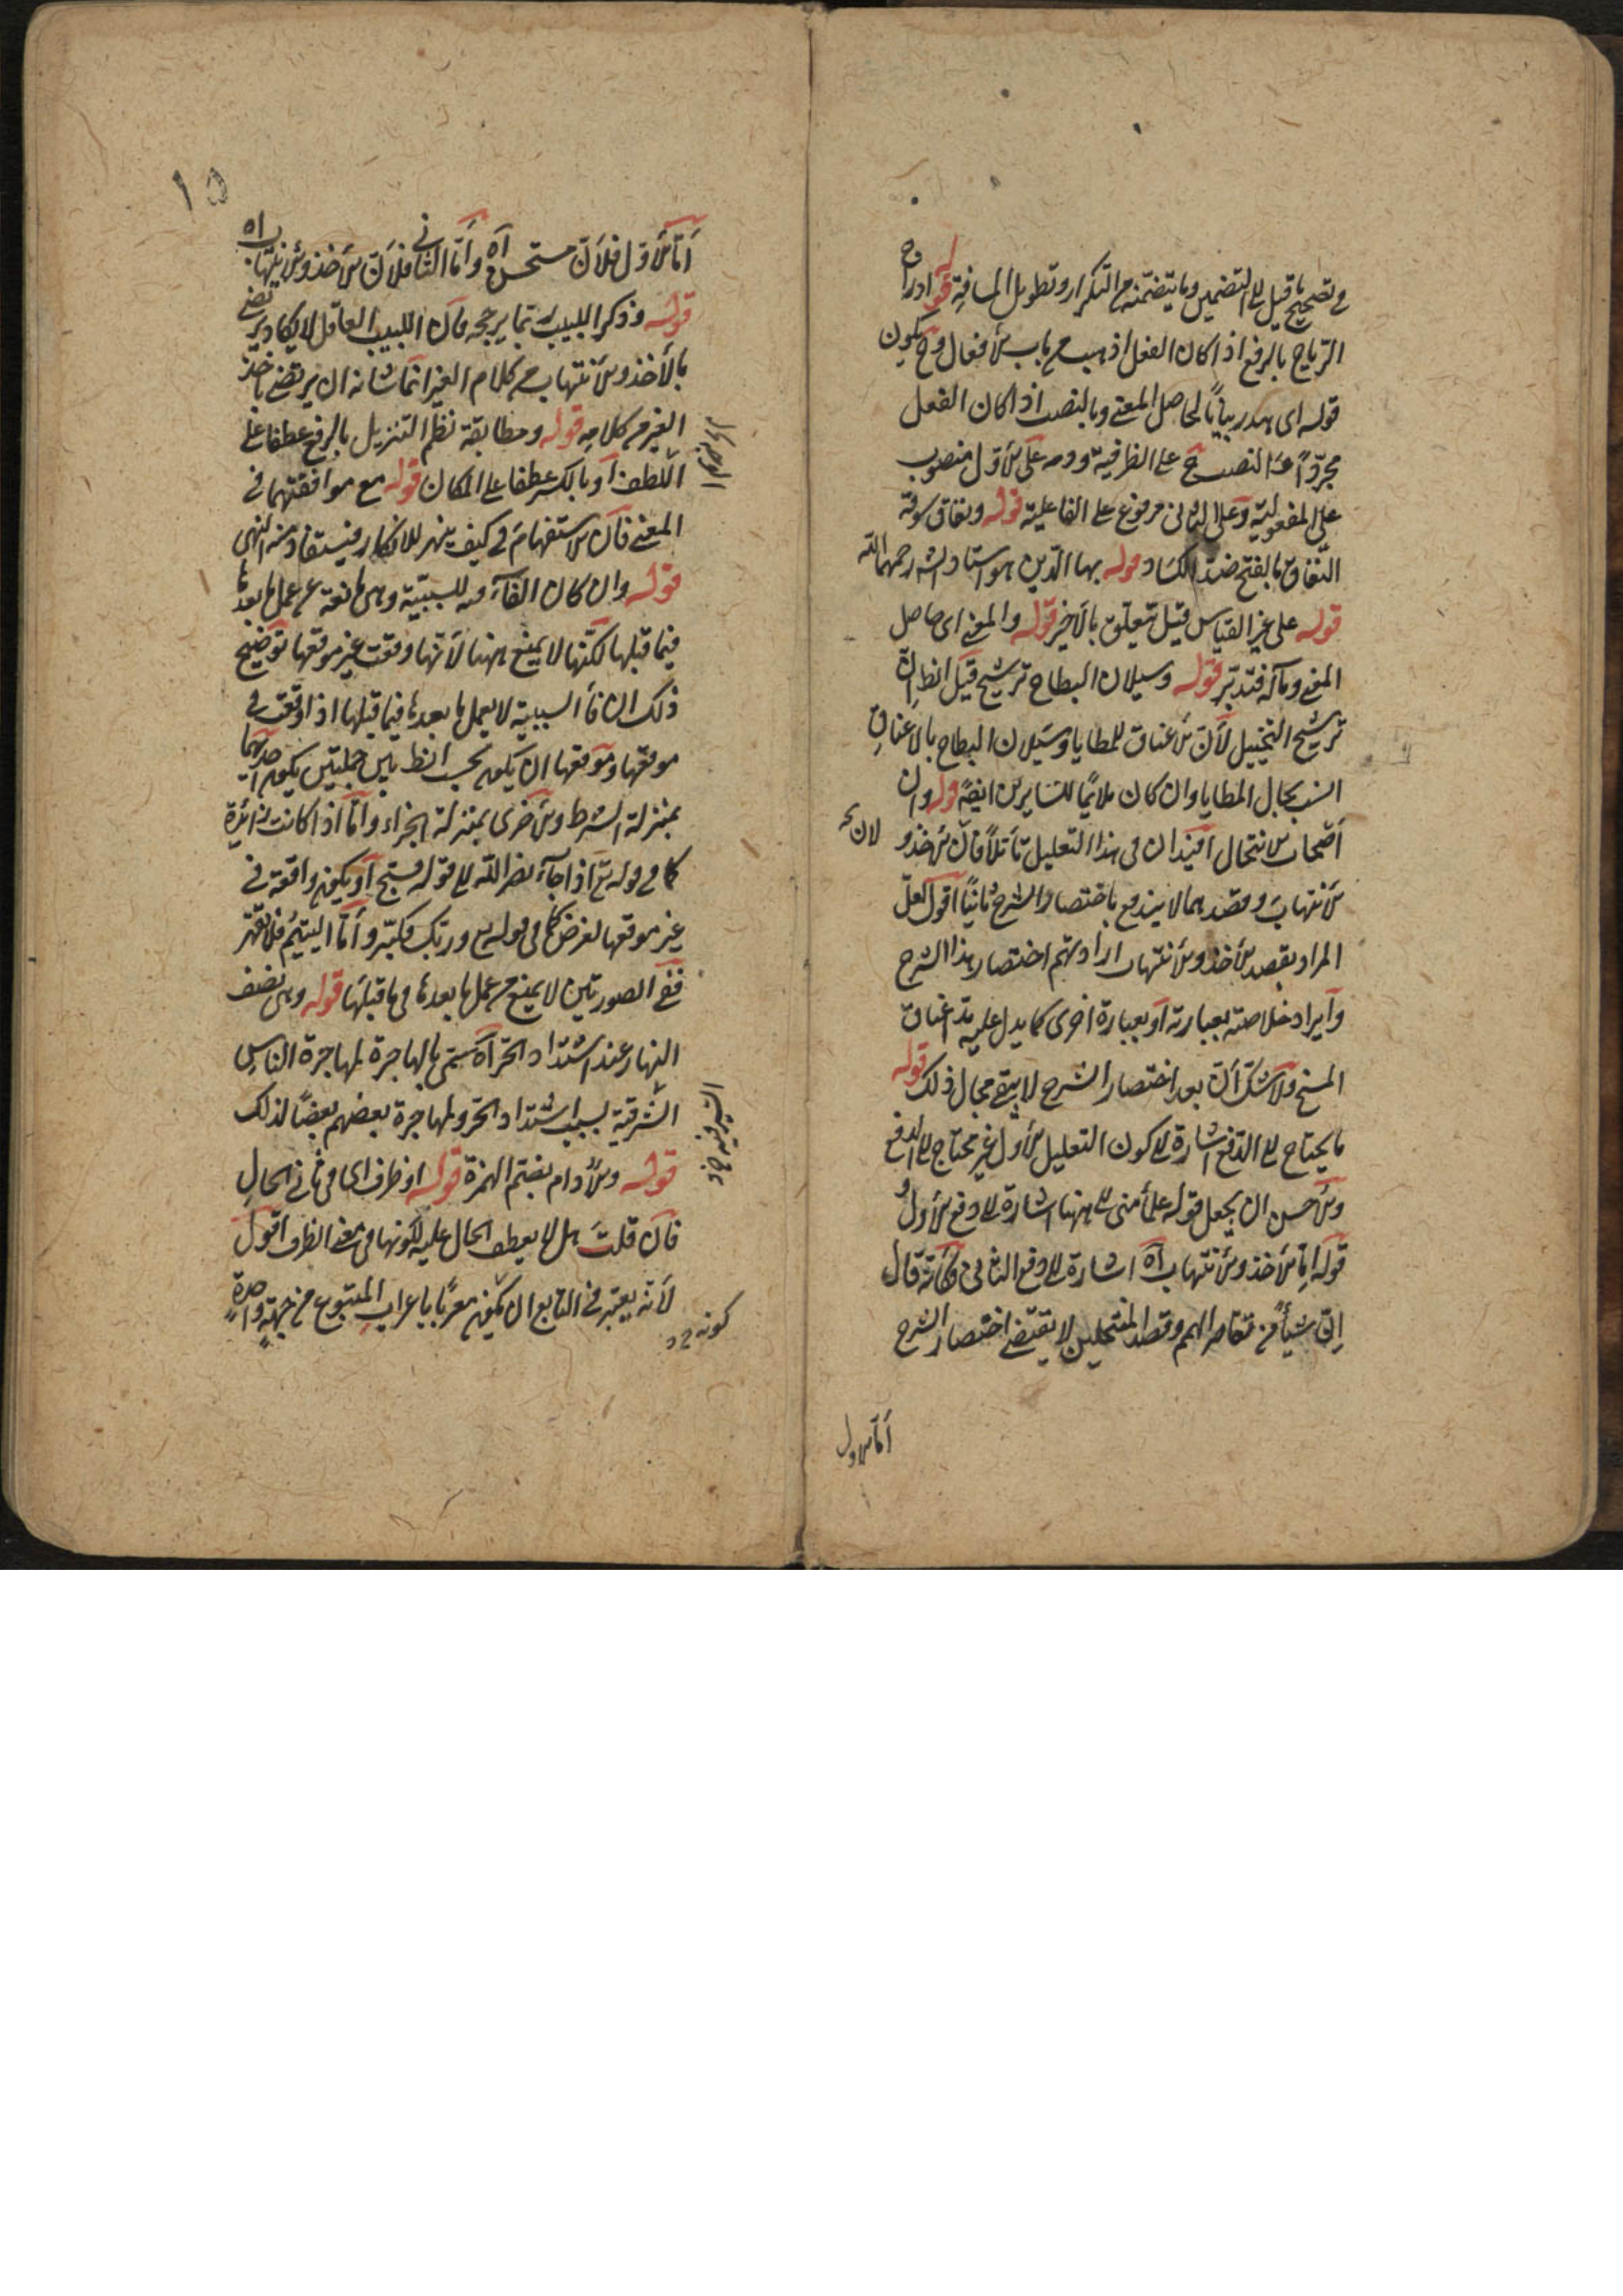 وتصحيح ما قيل الى التضمين وما يتضمنه من التكرار وتطويل المسافة قوله ادراج
الرياح بالرفع اذا كان الفعل اذهب من باب الافعال وح يكون
قوله اى هدر بيانا لحاصل المعنى وبالنصب اذا كان الفعل
مجردا النصب ح على الظرفية ودمه على الاول منصوب
على المفعولية وعلى الثانى مرفوع على الفاعلية قوله ونفاق سوقه
النفاق بالفتح ضد الكساد قوله بهاء الدين هو استاد الش رحمهما الله
قوله على غير القياس قيل متعلق بالاخير قوله والمعنى اى حاصل
المعنى ومآله فتدبر قوله وسيلان البطاح ترشيح قيل انظ ان
ترشيح التخييل لأن الاعناق للمطايا وسيلان البطاح بالاعناق
انسب بحال المطايا وان كان ملائما للسايرين ايضا قوله وان
اضمحال الانتحال افيد ان فى هذا التعليل تأملا فان الاخذ و
الانتهاب وقصدهما لا يندفع باختصار الشرح ثانيا اقول لعل
المراد بقصد الاخذ والانتهاب ارادتهم اختصار هذا الشرح
وايراد خلاصته بعبارته او بعبارة اخرى كما يدل عليه مد اعناق
المسخ ولا شك أن بعد اختصار الشرح لا يبقى مجال ذلك قوله
ما يحتاج الى الدفع اشارة الى كون التعليل الاول غير محتاج الى الدفع
والاحسن ان يجعل قوله علما منى الى ههنا اشارة الى دفع الاول و
قوله اما الاخذ والانتهاب آه اشارة الى دفع الثانى فكأنه قال
إن شيئا من تقاصر الهمم وقصد المنتحلين لا يقتضى اختصار الشرح
أما الاول
١٥
أما الاول فلأن مستحسن آه وأما الثانى فلأن الاخذ والانتهاب آه
قوله وذكر اللبيب ربما يرجحه فان اللبيب العاقل لا يكاد يرتضى
بالأخذ والانتهاب من كلام الغير انما شانه ان يرتضى باخذ
الغير من كلامه قوله ومطابقة نظم التنزيل بالرفع عطفا على
اللطف او بالكسر عطفا على المكان قوله مع موافقتهما فى
المعنى فان الاستفهام فى كيف ينهر للانكار فيستفاد منه النهى
قوله وان كان الفآء فيه للسببية وهى مانعة عن عمل ما بعدها
فيما قبلها لكنها لا يمنع ههنا لأنها وقعت غير موقعها توضيح
ذلك ان فاء السببية لا يعمل ما بعدها فيما قبلها اذا وقعت فى
موقعها وموقعها ان يكون بحسب الظ بين جملتين يكون احديهما
بمنزلة الشرط والاخرى بمنزلة الجزاء وأما اذا كانت زائدة
كما فى قوله تع اذا جآء نصر الله الى قوله فسبح او يكون واقعة فى
غير موقعها لغرض كما فى قوله تع وربك فكبر وأما اليتيم فلا تقهر
ففى الصورتين لا يمنع من عمل ما بعدها فى ما قبلها قوله وهى نصف
النهار عند اشتداد الحر آه سمى بالهاجرة لمهاجرة الناس
الشرقية لسبب اشتداد الحر ولمهاجرة بعضهم بعضا لذلك
قوله والأوام بضم الهمزة قوله او ظرف اى فى ثانى الحال
فان قلت هل لا يعطف الحال عليه لكونها فى معنى الظرف اقول
لأنه يعتبر فى التابع ان يكون معربا باعراب المتبوع من جهة واحدة
كونه